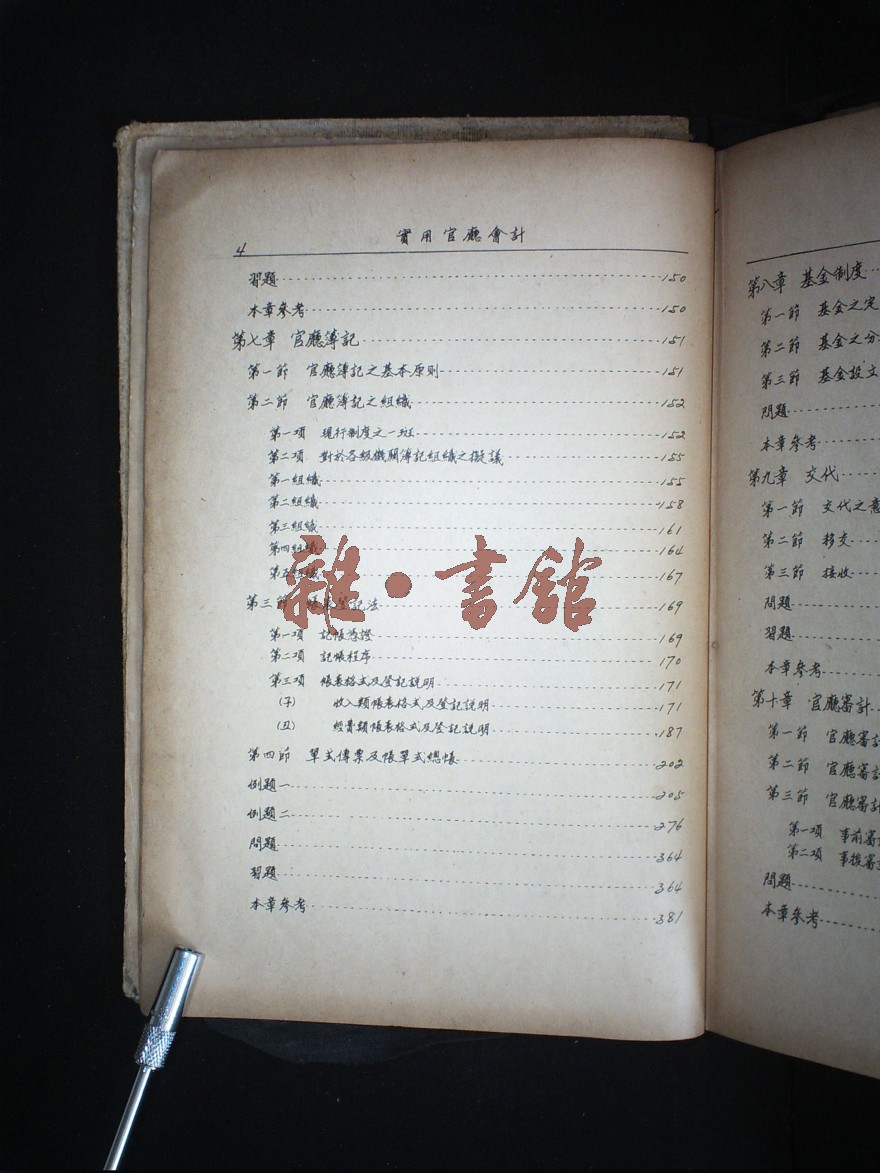 4 實用官廳會計
習題 150
本章參考 150
第七章 官廳簿記 151
第一節 官廳簿記之基本原則 151
第二節 官廳簿記之組織 152
第一項 現行制度之一班 152
第二項 對於各級機關簿記組織之擬議 155
第一組織 155
第二組織 158
第三組織 161
第四組織 164
第五組織 167
第三節 帳表登記法 169
第一項 記帳憑證 169
第二項 記帳程序 170
第三項 帳表格式及登記說明 171
(子) 收入類帳表格式及登記說明 171
(丑) 經費類帳表格式及登記說明 187
第四節 單式傳票及帳單式總帳 202
例題一 205
例題二 276
問題 364
習題 364
本章參考 381
雜·書館
第八章 基金制度
第一節 基金之定
第二節 基金之分
第三節 基金設立
問題
本章參考
第九章 交代
第一節 交代之意
第二節 移交
第三節 接收
問題
習題
本章參考
第十章 官廳審計
第一節 官廳審計
第二節 官廳審計
第三節 官廳審計
第一項 事前審計
第二項 事後審計
問題
本章參考